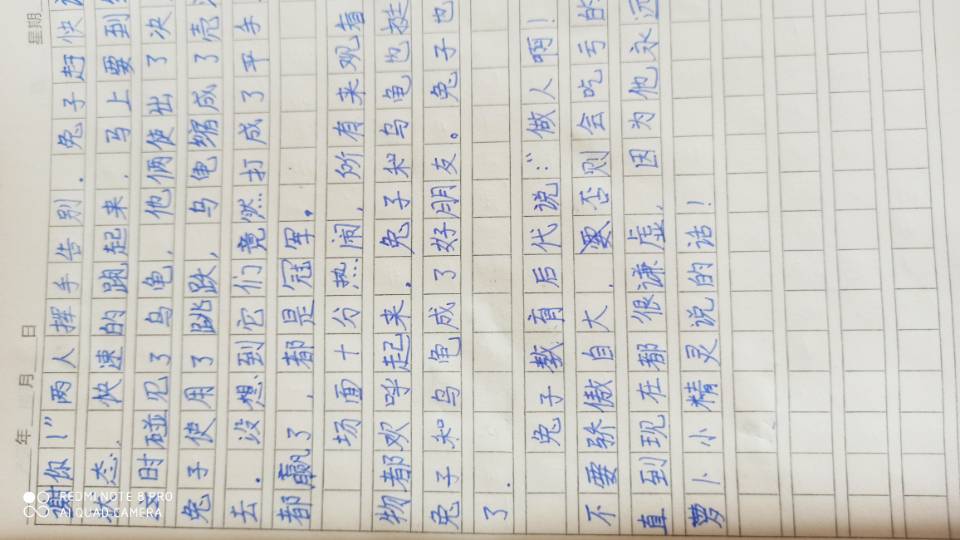 年 月 日 星期
谢你！”两人挥手告别．兔子赶快
状态，快速的跑起来，马上要到
之时碰见了乌龟，他俩使出了决
兔子使用了跳跃，乌龟缩成了壳
去．没想到它们竟然打成了平手
都赢了，都是冠军．
场面十分热闹，所有来观看
物都欢呼起来．兔子和乌龟也挺
兔子知乌龟成了好朋友。兔子也
了．
兔子教育后代说：“做人啊！
不要骄傲自大，否则会吃亏的
直到现在都很谦虚，因为他永远
萝卜小精灵说的话！
REDMI NOTE 8 PRO
AI QUAD CAMERA